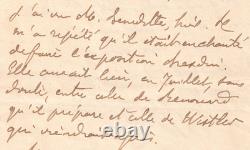 J'ai vu M. Benedite, puis. Il
m'a répété qu'il était enchanté
de faire l'exposition
Elle aurait lieu, en Juillet, sans
doute, entre celle de Renouard
qu'il prépare et celle de Whistler
qui viendra après.